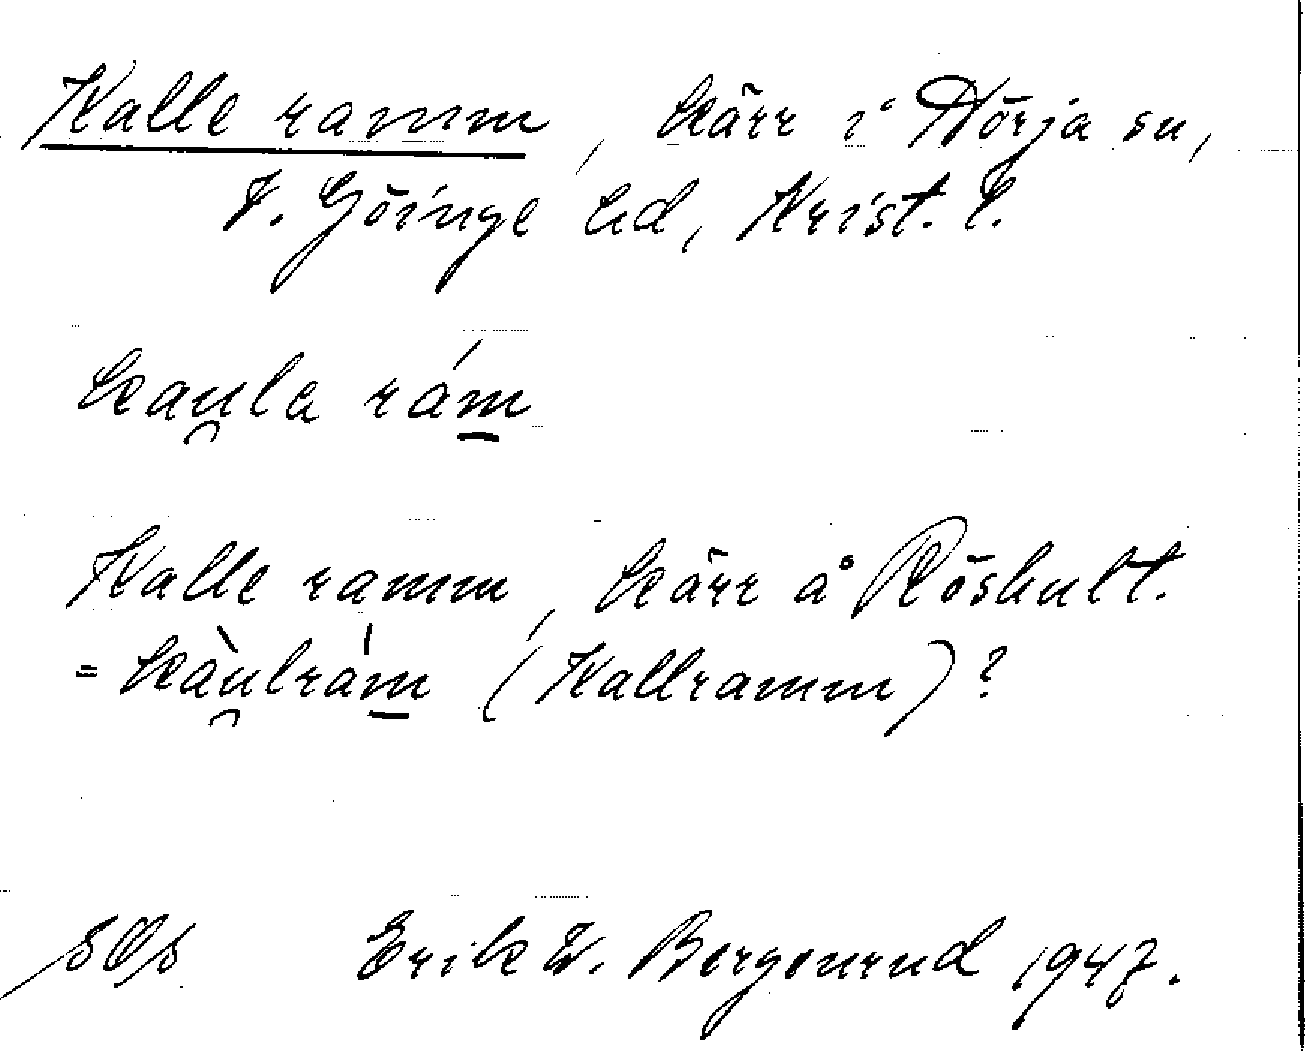 Kalle ramm, kärr i Nörja sn,
V. Göinge hd, Krist. l.
kau̯la rám̲
Kalle ramm, kärr å Röshult.
= kàu̯lrám̲ (Kallramm)?
Erik W. Bergenrud 1947.